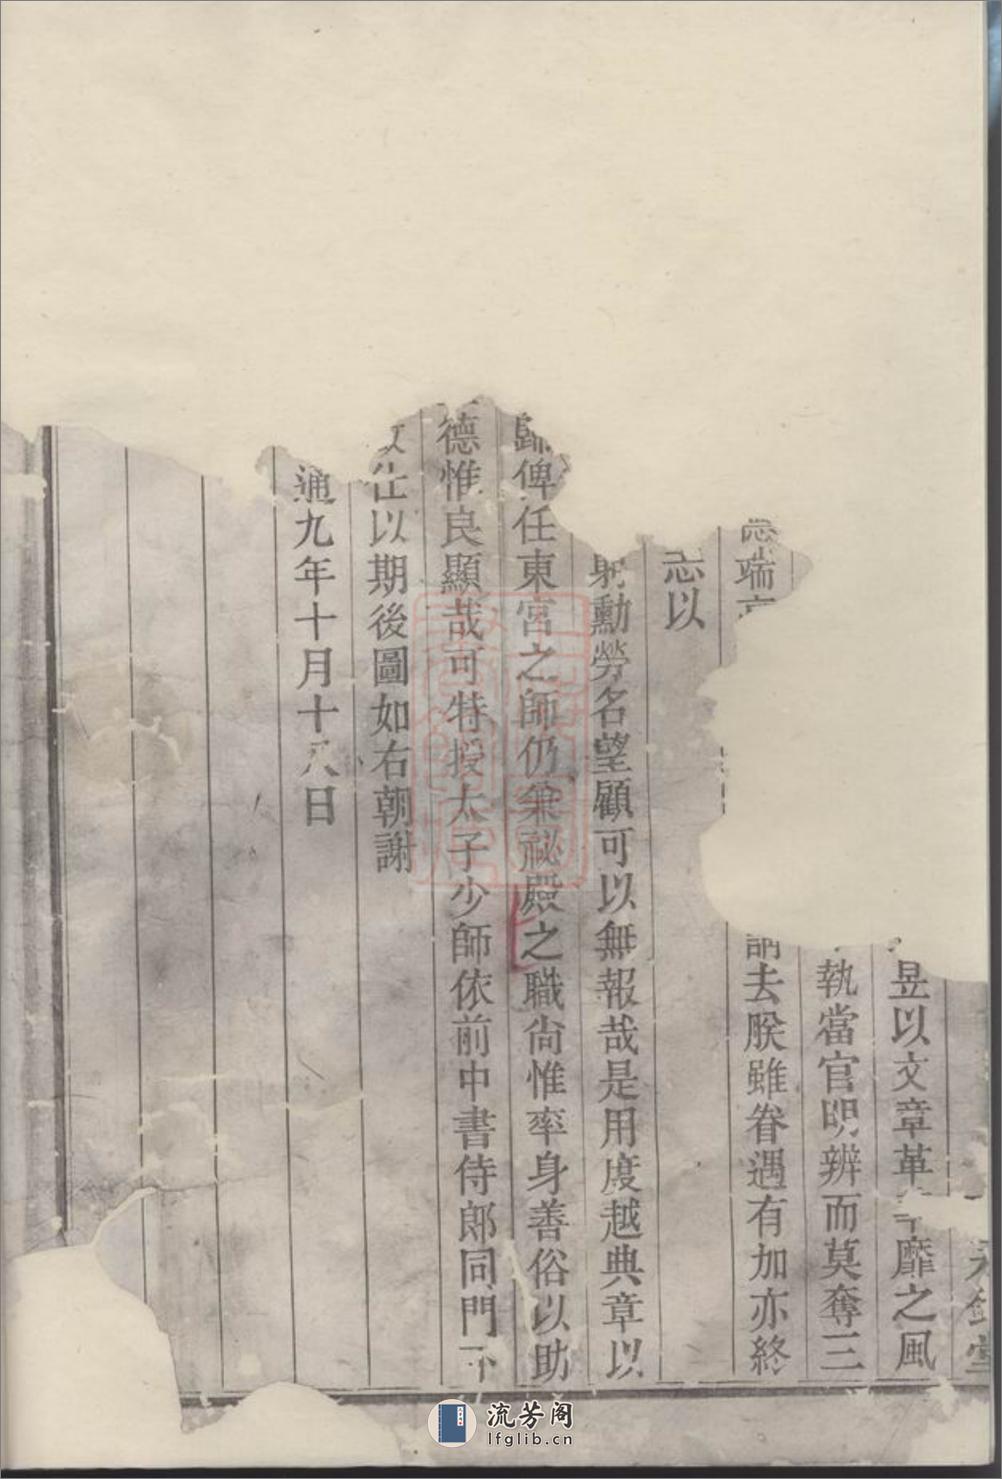 昱以文章革靡之風
執當官明辨而莫奪三
端
去朕雖眷遇有加亦終
忘以
勳勞名望顧可以無報哉是用度越典章以
歸俾任東宮之師仍兼祕殿之職尚惟率身善俗以助
德惟良顯哉可特授太子少師依前中書侍郎同門下
致仕以期後圖如右朝謝
通九年十月十八日
流芳阁
lfglib.cn